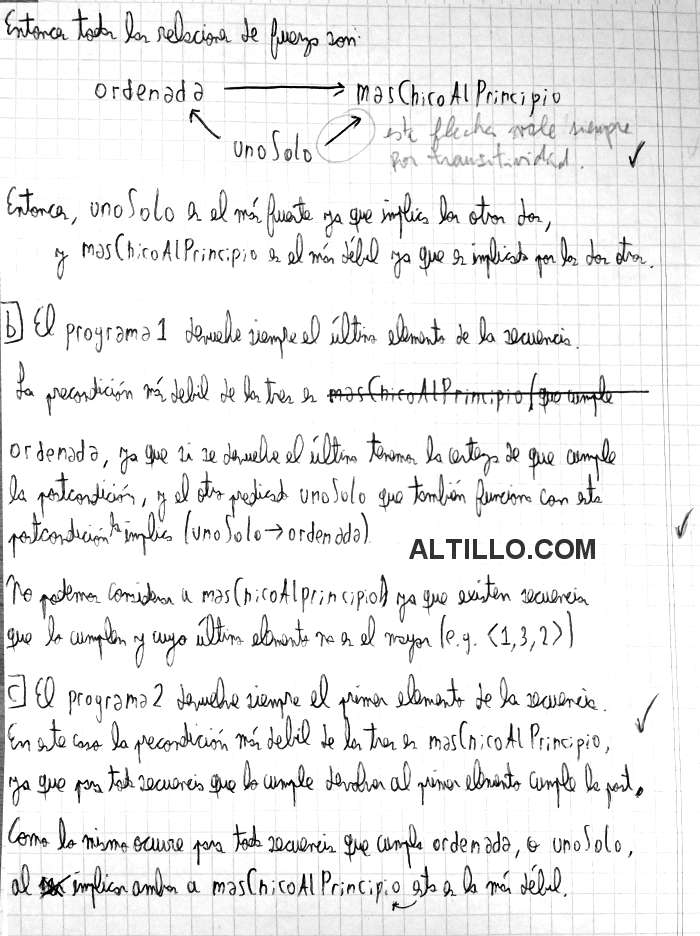 Entonces todas las relaciones de fuerza son:
ordenada → masChicoAlPrincipio
unoSolo
esta flecha vale siempre
por transitividad.
Entonces, unoSolo es el más fuerte ya que implica los otros dos,
y masChicoAlPrincipio es el más débil ya que es implicado por los dos otros.
b) El programa1 devuelve siempre el último elemento de la secuencia.
La precondición más débil de las tres es masChicoAlPrincipio (que cumple
ordenada, ya que si se devuelve el último tenemos la certeza de que cumple
la postcondición, y el otro predicado unoSolo que también funciona con esta
postcondición la implica (unoSolo → ordenada)
ALTILLO.COM
No podemos considerar a masChicoAlprincipio() ya que existen secuencias
que lo cumplen y cuyo último elemento no es el mayor (e.g. <1,3,2>)
c) El programa2 devuelve siempre el primer elemento de la secuencia.
En este caso la precondición más débil de las tres es masChicoAlPrincipio,
ya que para toda secuencia que lo cumple devolver al primer elemento cumple la post.
Como lo mismo ocurre para toda secuencia que cumpla ordenada, o unoSolo,
al implicar ambos a masChicoAlPrincipio esta es la más débil.